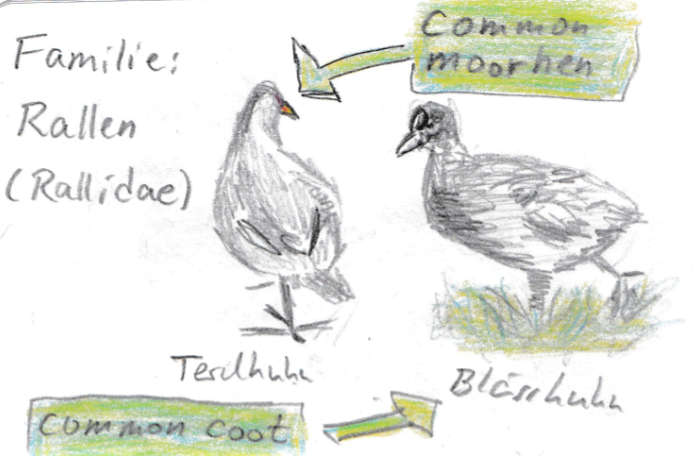 Familie:
Rallen
(Rallidae)
Common
moorhen
Teichhuhn
Blässhuhn
Common coot